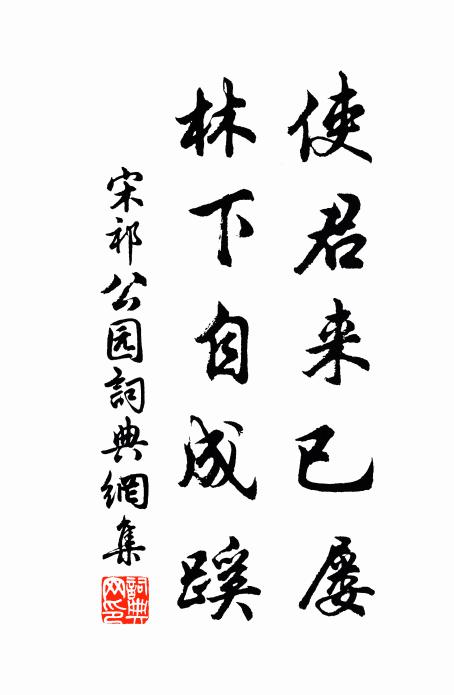 使君来已屡
林下自成蹊
宋祁公园詞典網集
詞典网印